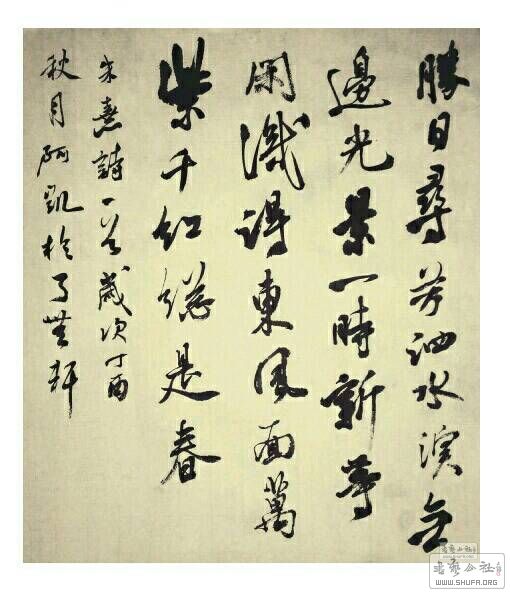 勝日尋芳泗水濱無
邊光景一時新等
閑識得東風面萬
紫千紅總是春
朱熹詩一首歲次丁酉
秋月阿凱於了無軒
书艺公社
WWW.SHUFA.ORG